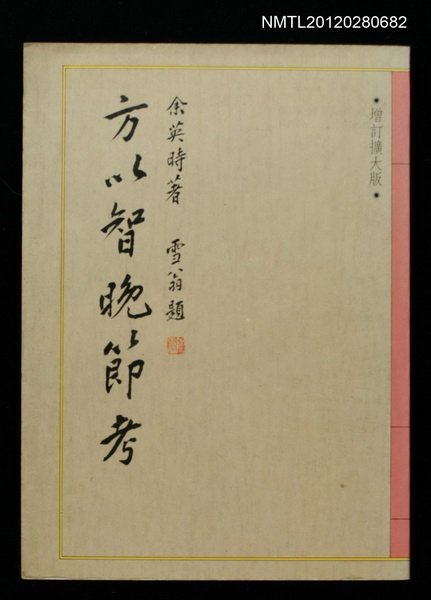 NMTL20120280682
•增訂擴大版•
余英時著 雪翁題
方以智晚節考